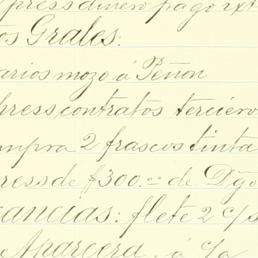 press dinero pago ext
os Grales:
arios mozo á Peñon
press contratos tercero
mpra 2 frascos tinta
ress de $300.00 de Dgo
ancias: flete 2 c/s
Aparcera, á c/a